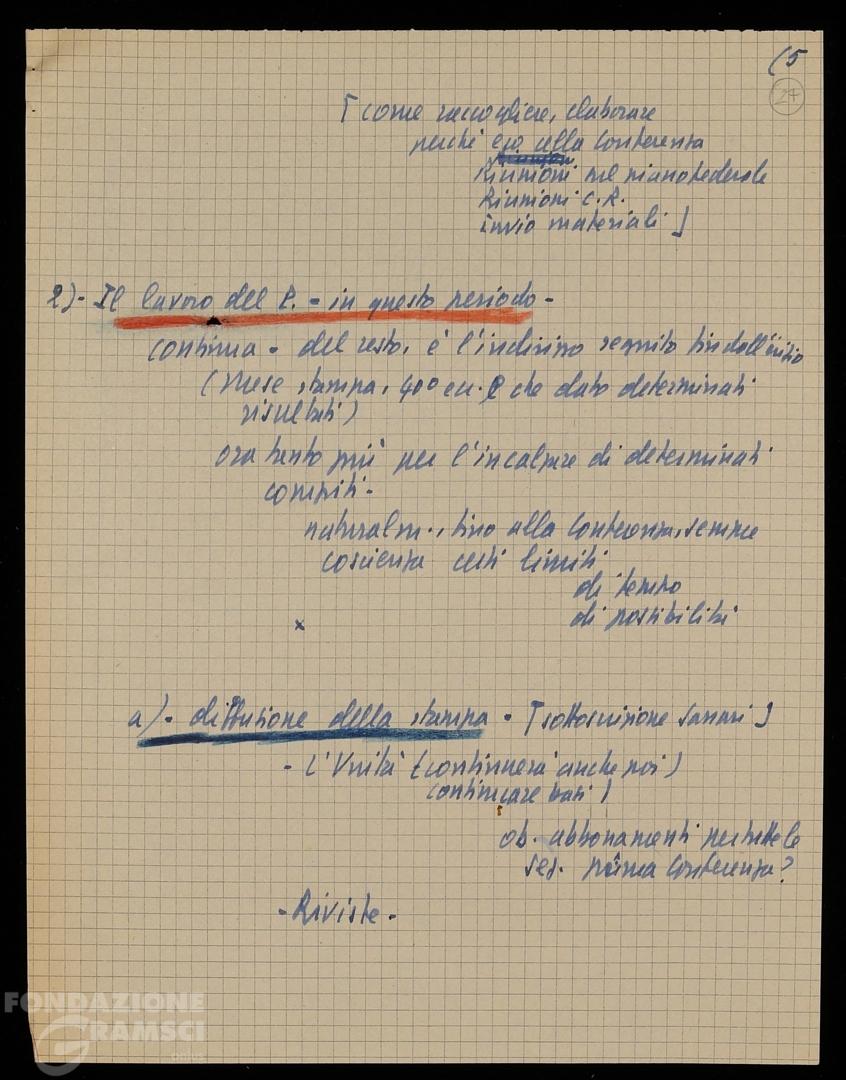 (5
27
[ come raccogliere, elaborare
perché della Conferenza
Riunioni nel piano federale
Riunioni C.R.
invio materiali ]
2)- Il lavoro del P. - in questo periodo -
continua - del resto, è l'indirizzo seguito fin dall'inizio
(Mese stampa, 400 che dato determinati
risultati)
ora tanto più per l'incalzare di determinati
compiti -
naturalm., fino alla Conferenza, sempre
coscienza certi limiti
di tempo
di possibilità
x
a)- diffusione della stampa - [sottoscrizione Sassari]
- L'Unità (continuerà anche poi)
continuare basi)
ob. abbonamenti per tutte le
sez. prima Conferenza?
- Riviste -
FONDAZIONE
GRAMSCI
onlus